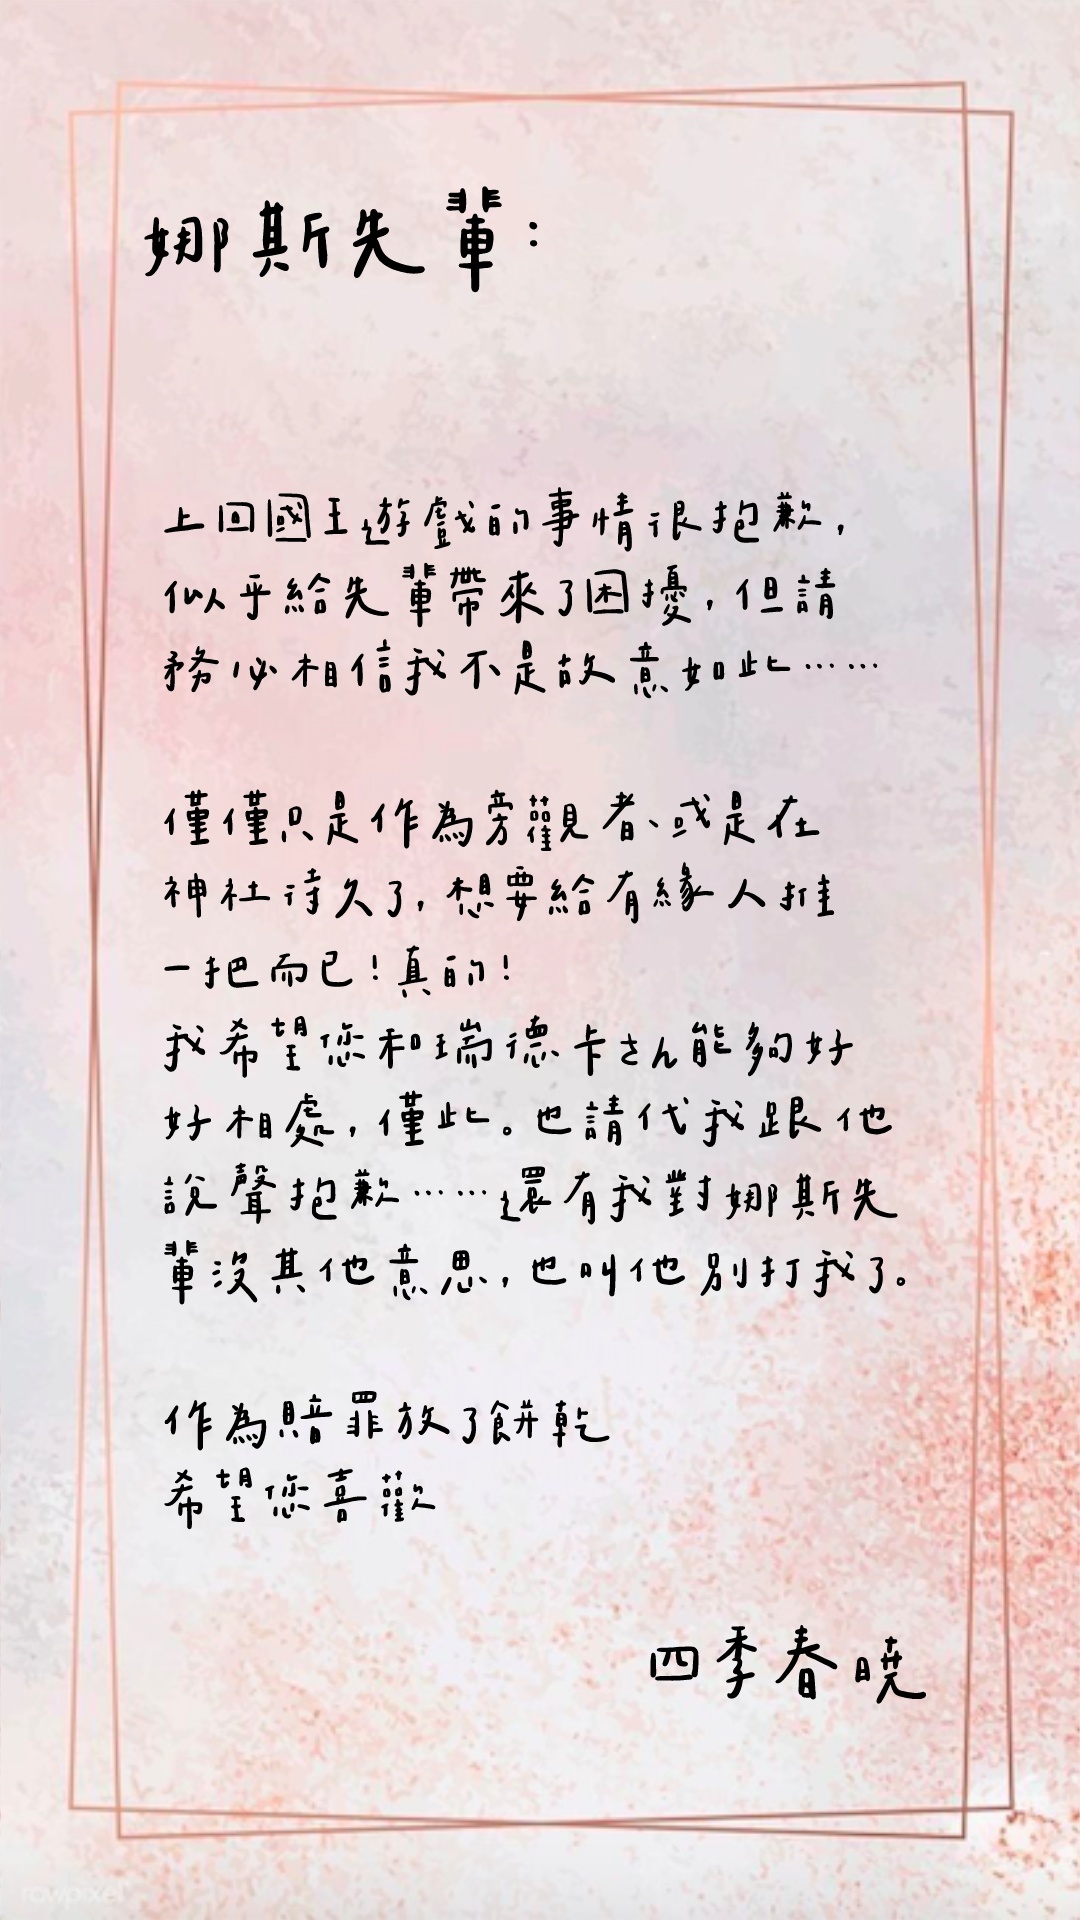 娜斯先輩：
上回國王遊戲的事情很抱歉，
似乎給先輩帶來了困擾，但請
務必相信我不是故意如此⋯⋯
僅僅只是作為旁觀者、或是在
神社待久了，想要給有緣人推
一把而已！真的！
我希望您和瑞德卡さん能夠好
好相處，僅此。也請代我跟他
說聲抱歉⋯⋯還有我對娜斯先
輩沒其他意思，也叫他別打我了。
作為賠罪放了餅乾
希望您喜歡
四季春曉
rawpixel